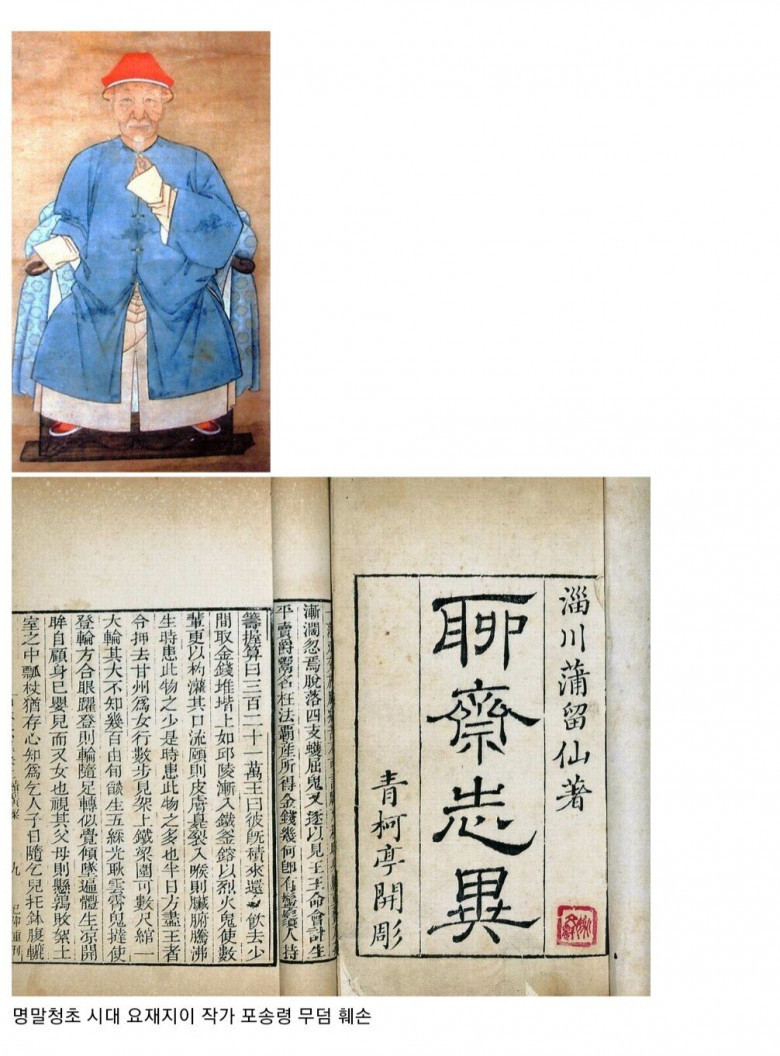 淄川蒲留仙著
聊齋志異
青柯亭開彫
忽焉脫落四支蠖屈鬼又逐以見王王命會計生
平賣爵鬻名枉法霸產所得金錢幾何卽有鬚人持
籌握算曰三百二十一萬王曰彼旣積來還令飲去少
間取金錢堆堦上如邱陵漸入鐵釜鎔以烈火鬼使數
輩更以杓灌其口流頤則皮膚臭裂入喉則臟腑騰沸
生時患此物之少是時患此物之多也半日方盡王者
令押去甘州爲女行數步見架上鐵梁圍可數尺綰一
大輪其大不知幾百由旬燄生五綵光耿雲霄鬼撻使
登輪方合眼躍登則輪隨足轉似覺傾墜遍體生凉開
眸自顧身已嬰兒而又女也視其父母則懸鶉敗絮土
室之中瓢杖猶存心知爲乞人子日隨乞兒托鉢腹轆
명말청초 시대 요재지이 작가 포송령 무덤 훼손